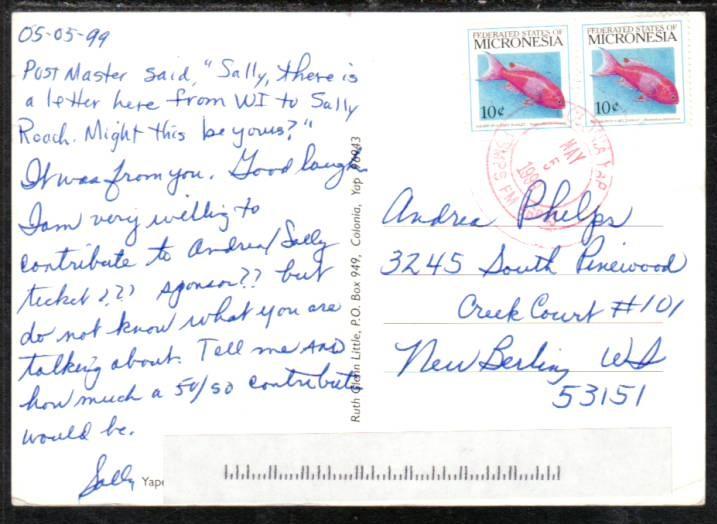 05-05-99
Post Master said, "Sally, there is
a letter here from WI to Sally
Roach. Might this be yours?"
It was from you. Good laugh.
I am very willing to
contribute to Andrea/Sally
ticket ??? sponsor?? but
do not know what you are
talking about. Tell me AND
how much a 50/50 contribute
would be.
Sally
Yape
Ruth Glenn Little, P.O. Box 949, Colonia, Yap 96943
FEDERATED STATES OF
MICRONESIA
10¢
FEDERATED STATES OF
MICRONESIA
10¢
YAP
MAY
5
FM
Andrea Phelps
3245 South Pinewood
Creek Court #101
New Berlin, WI
53151